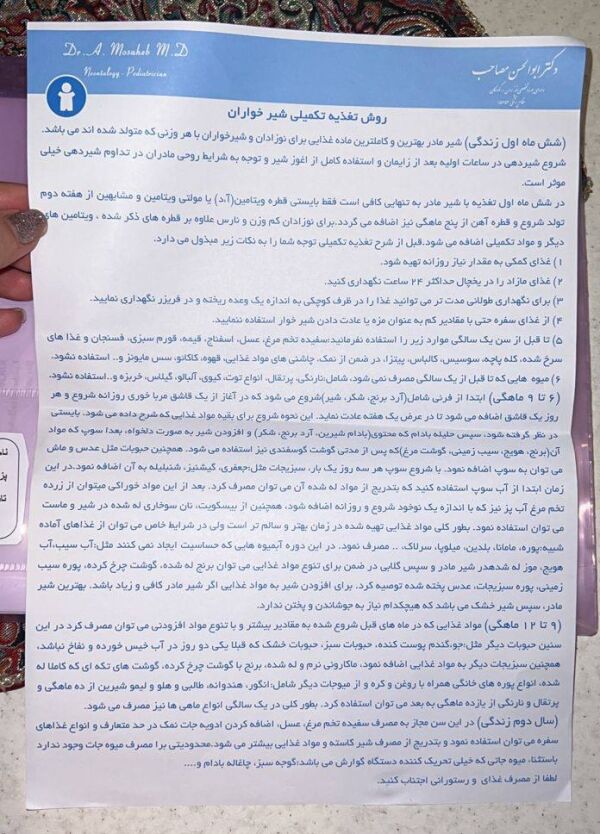 Dr. A. Mosaheb M.D
Neonatology - Pediatrician
دکتر ابوالحسن مصاحب
روش تغذیه تکمیلی شیر خواران
(شش ماه اول زندگی) شیر مادر بهترین و کاملترین ماده غذایی برای نوزادان و شیرخواران با هر وزنی که متولد شده اند می باشد.
شروع شیردهی در ساعات اولیه بعد از زایمان و استفاده کامل از آغوز شیر و توجه به شرایط روحی مادران در تداوم شیردهی خیلی
موثر است.
در شش ماه اول تغذیه با شیر مادر به تنهایی کافی است فقط بایستی قطره ویتامین(آ،د) یا مولتی ویتامین و مشابهین از هفته دوم
تولد شروع و قطره آهن از پنج ماهگی نیز اضافه می گردد.برای نوزادان کم وزن و نارس علاوه بر قطره های ذکر شده ، ویتامین های
دیگر و مواد تکمیلی اضافه می شود.قبل از شرح تغذیه تکمیلی توجه شما را به نکات زیر مبذول می دارد.
۱) غذای کمکی به مقدار نیاز روزانه تهیه شود.
۲) غذای مازاد را در یخچال حداکثر ۲۴ ساعت نگهداری کنید.
۳) برای نگهداری طولانی مدت تر می توانید غذا را در ظرف کوچکی به اندازه یک وعده ریخته و در فریزر نگهداری نمایید.
۴) از غذای سفره حتی با مقادیر کم به عنوان مزه یا عادت دادن شیر خوار استفاده ننمایید.
۵) تا قبل از سن یک سالگی موارد زیر را استفاده نفرمائید:سفیده تخم مرغ، عسل، اسفناج، قیمه، قورم سبزی، فسنجان و غذا های
سرخ شده، کله پاچه، سوسیس، کالباس، پیتزا، در ضمن از نمک، چاشنی های مواد غذایی، قهوه، کاکائو، سس مایونز و.. استفاده نشود.
۶) میوه هایی که تا قبل از یک سالگی مصرف نمی شود، شامل:نارنگی، پرتقال، انواع توت، کیوی، آلبالو، گیلاس، خربزه و..استفاده نشود.
(۶ تا ۹ ماهگی) ابتدا از فرنی شامل(آرد برنج، شکر، شیر)شروع می شود که در آغاز از یک قاشق مربا خوری روزانه شروع و هر
روز یک قاشق اضافه می شود تا در عرض یک هفته عادت نماید. این نحوه شروع برای بقیه مواد غذایی که شرح داده می شود، بایستی
در نظر گرفته شود، سپس حلیله بادام که محتوی(بادام شیرین، آرد برنج، شکر) و افزودن شیر به صورت دلخواه، بعدا سوپ که مواد
آن(برنج، هویج، سیب زمینی، گوشت مرغ)که پس از مدتی گوشت گوسفندی نیز استفاده می شود. همچنین حبوبات مثل عدس و ماش
می توان به سوپ اضافه نمود. با شروع سوپ هر سه روز یک بار، سبزیجات مثل:جعفری، گیشنیز، شنبلیله به آن اضافه نمود.در این
زمان ابتدا از آب سوپ استفاده کنید که بتدریج از مواد له شده آن می توان مصرف کرد. بعد از این مواد خوراکی میتوان از زرده
تخم مرغ آب پز نیز که با اندازه یک نوخود شروع و روزانه اضافه شود، همچنین از بیسکویت، نان سوخاری له شده در شیر و ماست
می توان استفاده نمود. بطور کلی مواد غذایی تهیه شده در زمان بهتر و سالم تر است ولی در شرایط خاص می توان از غذاهای آماده
شبیه:پوره، مامانا، بلدین، میلوپا، سرلاک، .. مصرف نمود. در این دوره آبمیوه هایی که حساسیت ایجاد نمی کنند مثل:آب سیب،آب
هویج، موز له شدهدر شیر مادر و سپس گلابی در ضمن برای تنوع مواد غذایی می توان برنج له شده، گوشت چرخ کرده، پوره سیب
زمینی، پوره سبزیجات، عدس پخته شده توصیه کرد. برای افزودن شیر به مواد غذایی اگر شیر مادر کافی و زیاد باشد. بهترین شیر
مادر، سپس شیر خشک می باشد که هیچکدام نیاز به جوشاندن و پختن ندارد.
(۹ تا ۱۲ ماهگی) مواد غذایی که در ماه های قبل شروع شده به مقادیر بیشتر و با تنوع مواد افزودنی می توان مصرف کرد در این
سنین حبوبات دیگر مثل:جو،گندم پوست کنده، حبوبات سبز، حبوبات خشک که قبلا یکی دو روز در آب خیس خورده و نفاخ نباشد،
همچنین سبزیجات دیگر به مواد غذایی اضافه نمود، ماکارونی نرم و له شده، برنج با گوشت چرخ کرده، گوشت های تکه ای که کاملا له
شده، انواع پوره های خانگی همراه با روغن و کره و از میوجات دیگر شامل:انگور، هندوانه، طالبی و هلو و لیمو شیرین از ده ماهگی و
پرتقال و نارنگی از یازده ماهگی به بعد می توان استفاده کرد. بطور کلی در یک سالگی انواع ماهی ها نیز مصرف می شود.
(سال دوم زندگی) در این سن مجاز به مصرف سفیده تخم مرغ، عسل، اضافه کردن ادویه جات نمک در حد متعارف و انواع غذاهای
سفره می توان استفاده نمود و بتدریج از مصرف شیر کاسته و مواد غذایی بیشتر می شود.محدودیتی برا مصرف میوه جات وجود ندارد
باستثنا، میوه جاتی که خیلی تحریک کننده دستگاه گوارش می باشد:گوجه سبز، چاغاله بادام و....
لطفا از مصرف غذای و رستورانی اجتناب کنید.